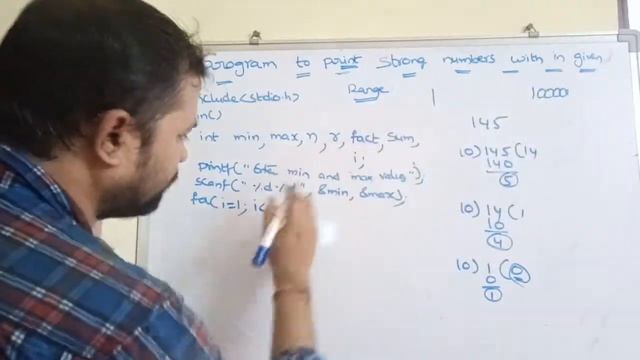 program to print strong numbers with in given
Range
include<stdio.h>
1 100000
int min, max, n, r, fact, sum,
i;
printf(" min and max value");
scanf("%d%d", &min, &max);
for(i=1; i<
145
10) 145 (14
140
5
10) 14 (1
10
4
10) 1 (0
0
1